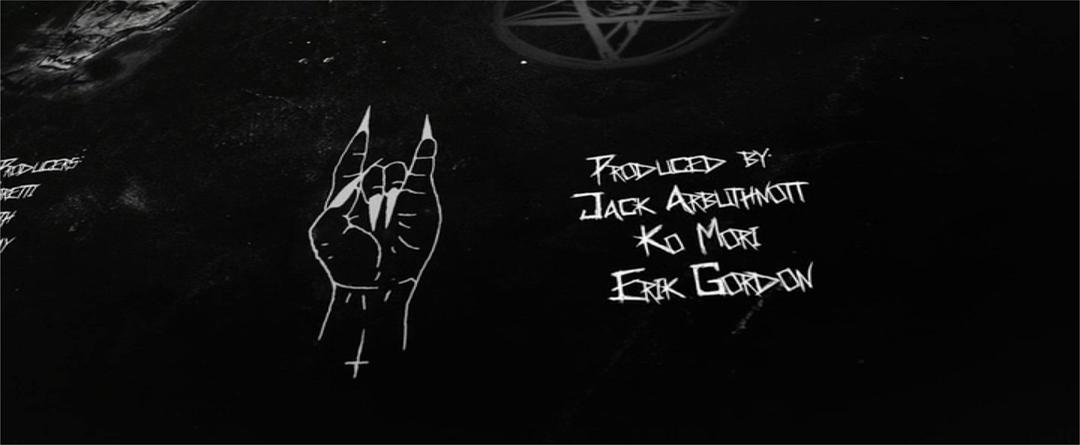 Producers
Produced by:
Jack Arbuthnott
Ko Mori
Erik Gordon